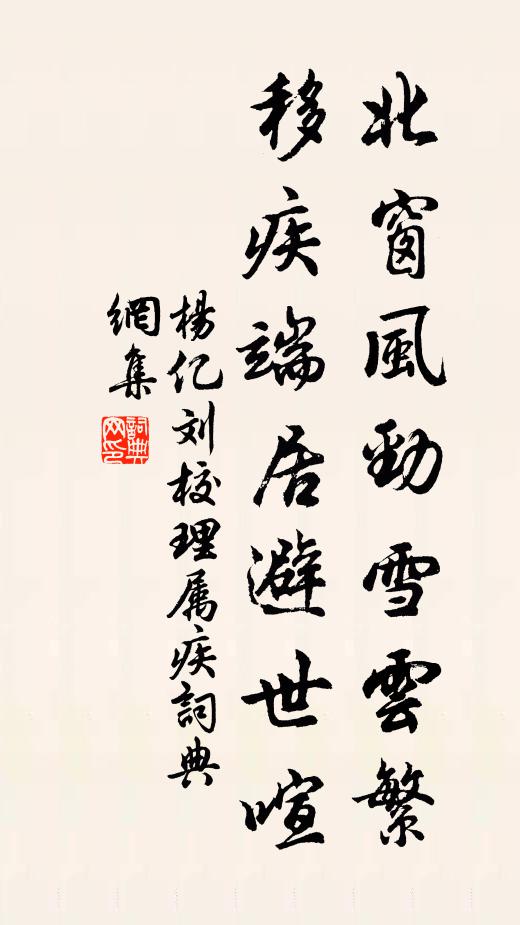 北窗風勁雪雲繁
移疾端居避世喧
楊亿刘校理属疾詞典
網集
詞典網印